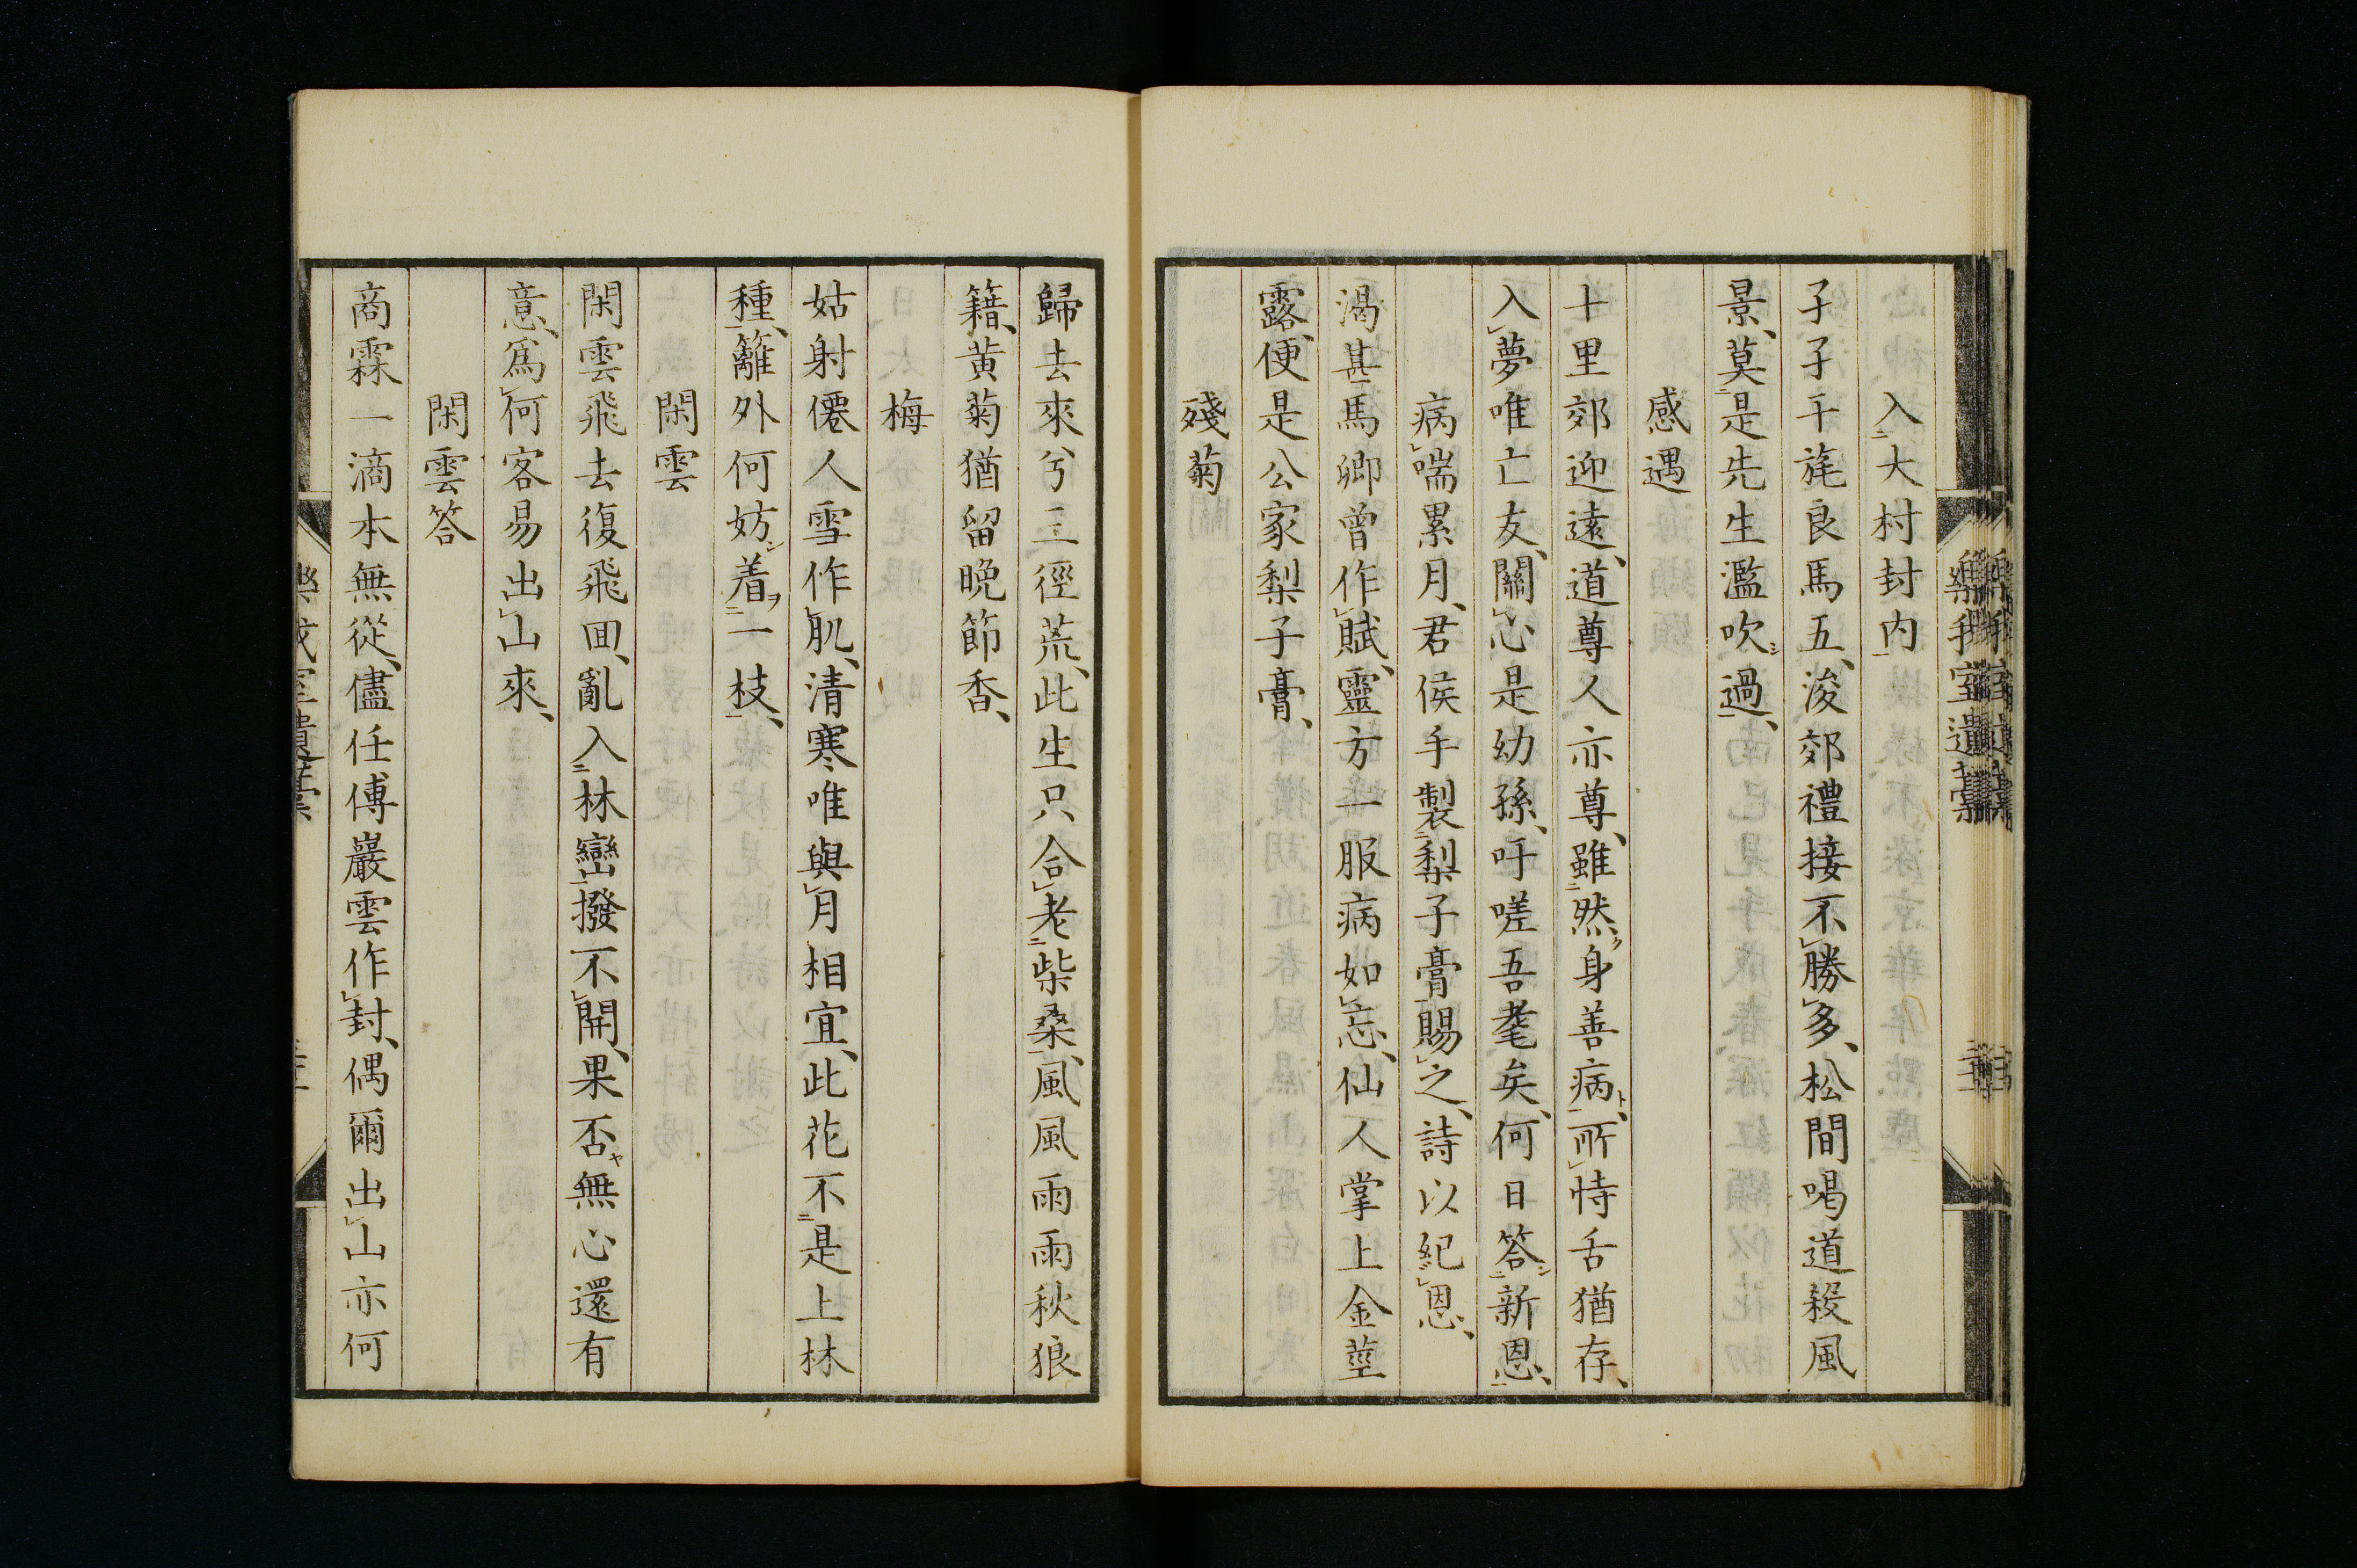 入大村封内
孑孑干旄良馬五、浚郊禮接不勝多、松間喝道殺風
景、莫是先生濫吹過、
感遇
十里郊迎遠、道尊人亦尊、雖然身善病、所恃舌猶存、
入夢唯亡友、關心是幼孫、吁嗟吾耄矣、何日答新恩、
病喘累月、君侯手製梨子膏賜之、詩以紀恩、
渴甚馬卿曾作賦、靈方一服病如忘、仙人掌上金莖
露、便是公家梨子膏、
殘菊
歸去來兮三徑荒、此生只合老柴桑、風風雨雨秋狼
籍、黄菊猶留晩節香、
梅
姑射僊人雪作肌、清寒唯與月相宜、此花不是上林
種、籬外何妨着一枝、
閑雲
閑雲飛去復飛回、亂入林巒撥不開、果否無心還有
意、爲何容易出山來、
閑雲答
商霖一滴本無從、儘任傅巖雲作封、偶爾出山亦何